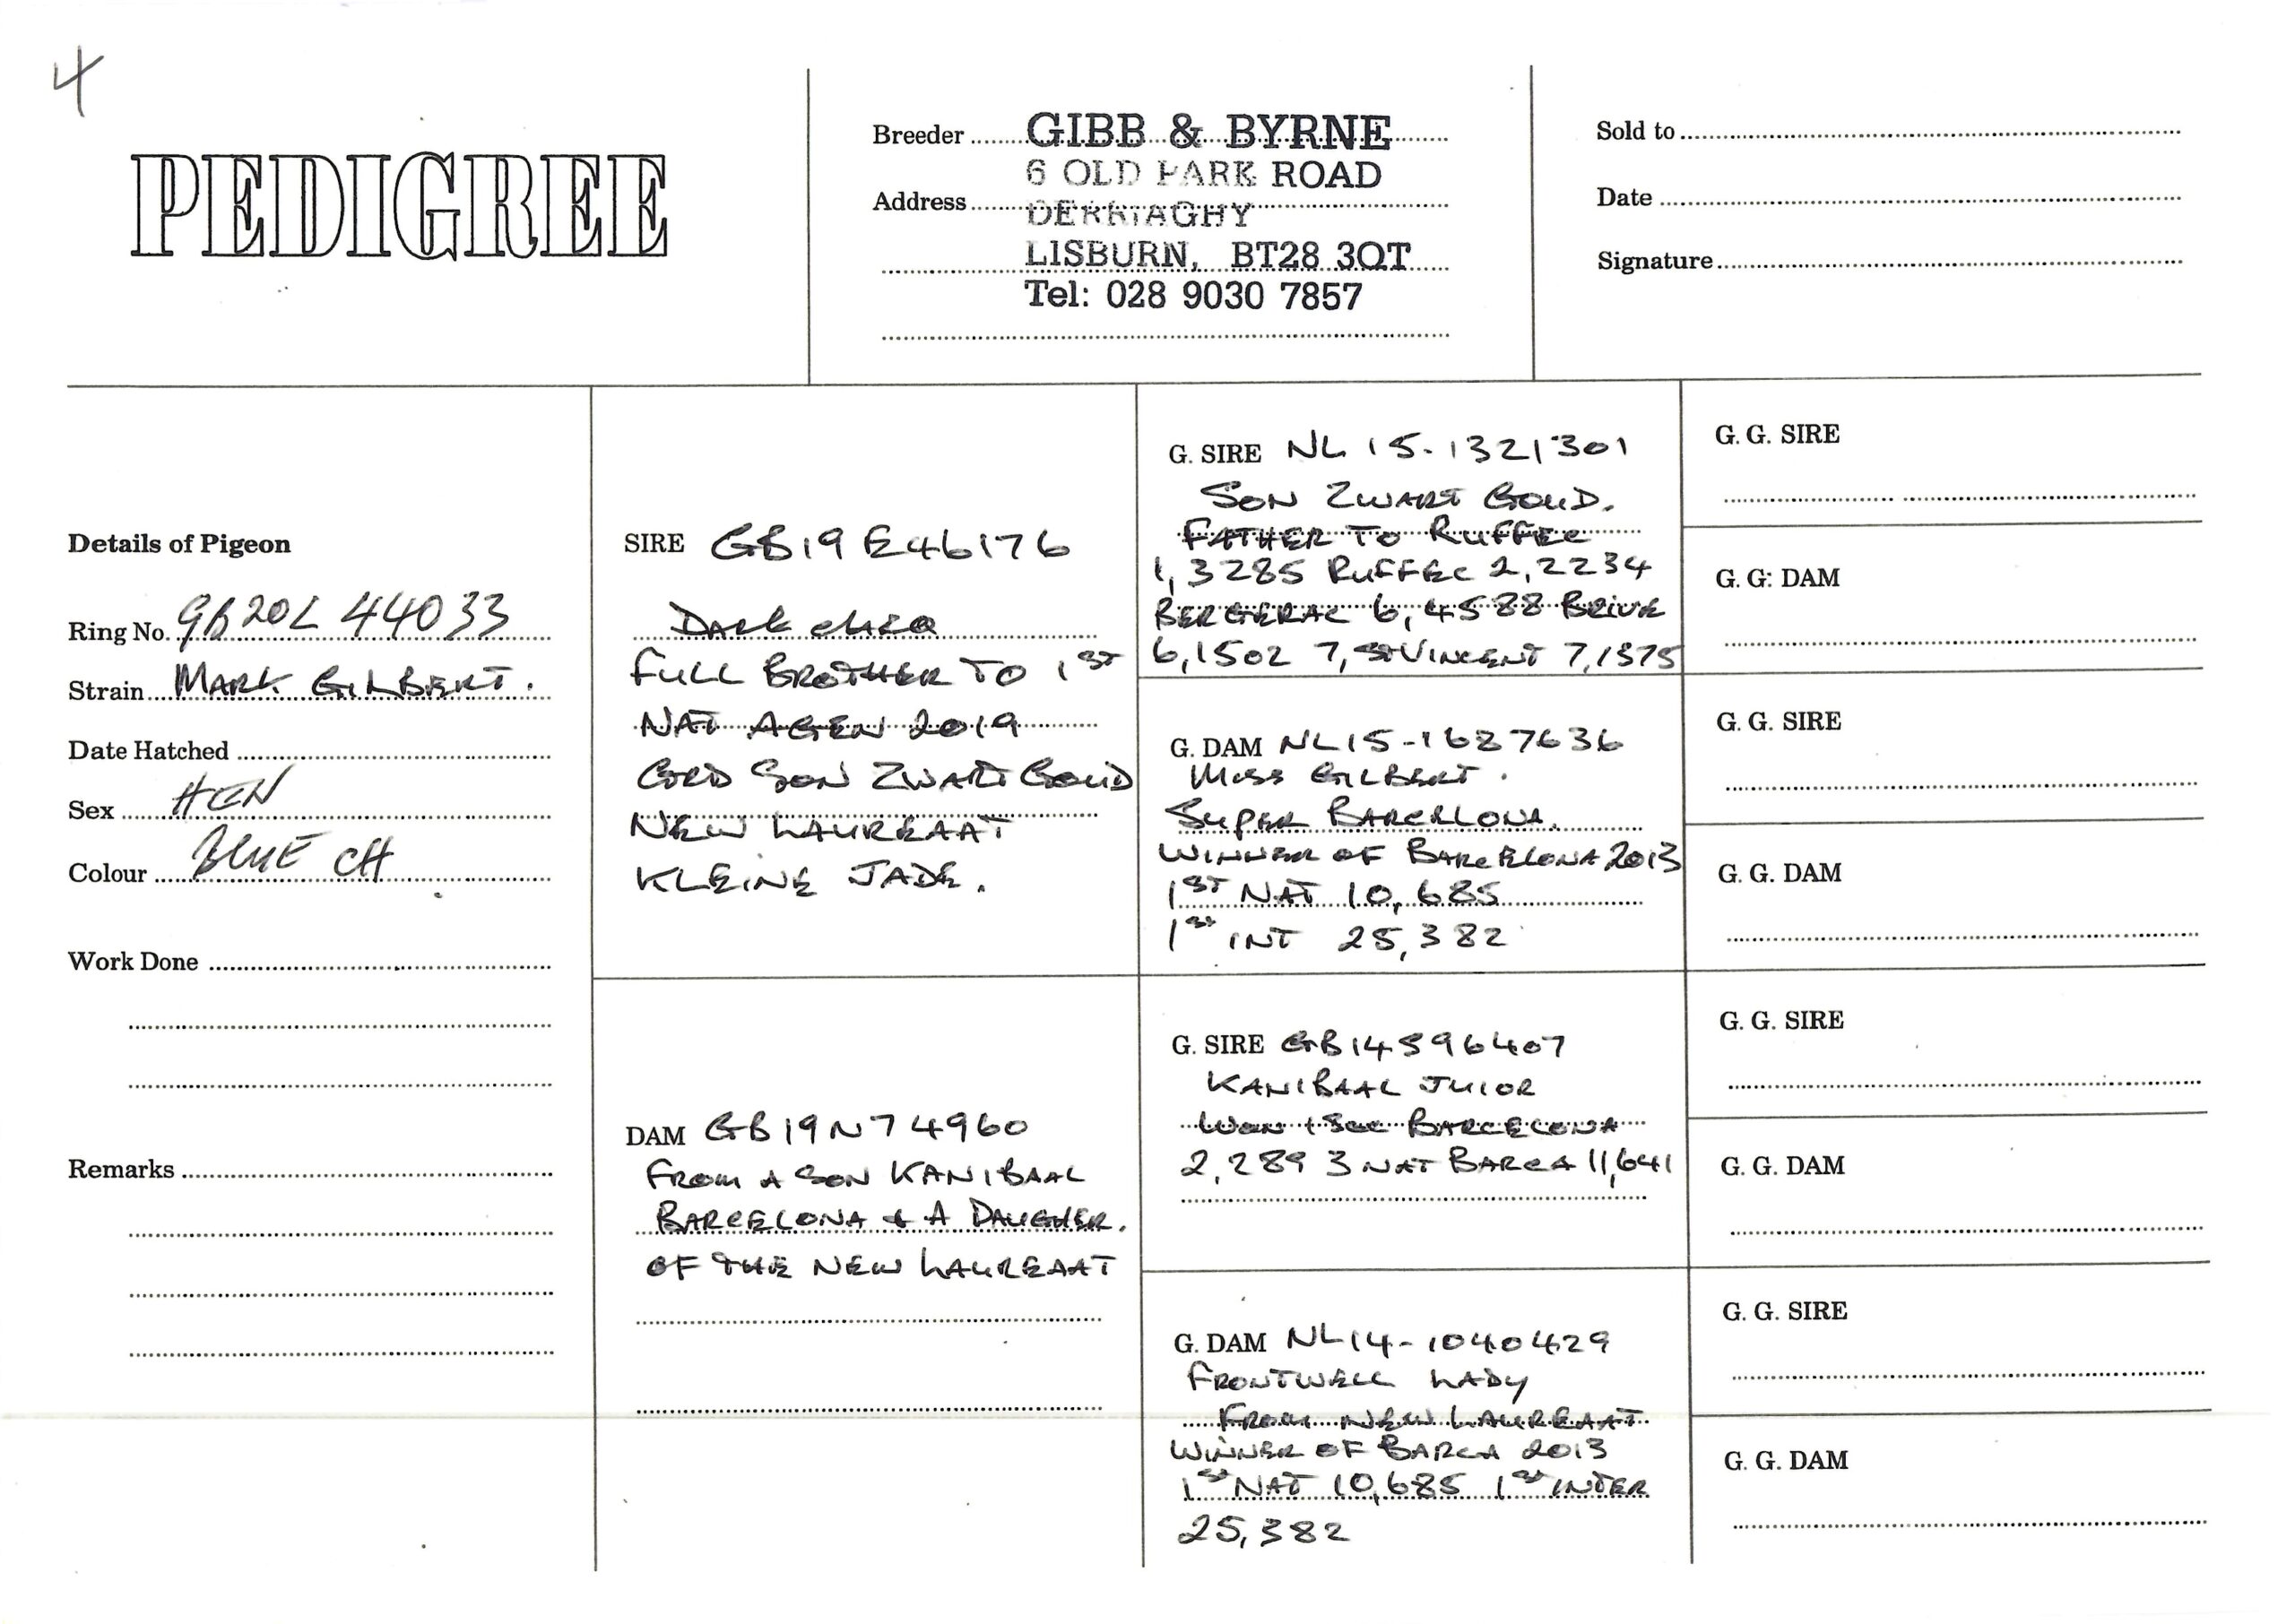 4
PEDIGREE
Breeder GIBB & BYRNE
6 OLD PARK ROAD
Address DERRIAGHY
LISBURN, BT28 3QT
Tel: 028 9030 7857
Sold to
Date
Signature
Details of Pigeon
Ring No. GB20L 44033
Strain MARK GILBERT.
Date Hatched
Sex HEN
Colour BLUE CH
Work Done
Remarks
SIRE GB19E46176
DARK
FULL BROTHER TO 1ST
NAT AGEN 2019
SON ZWART GOUD
NEW LAUREAAT
KLEINE JADE.
DAM GB19N74960
FROM A SON KANIBAAL
BARCELONA & A DAUGHER.
OF THE NEW LAUREAAT
G. SIRE NL 15-1321301
SON ZWART GOUD.
FATHER TO RUFFEC
1,3285 RUFFEC 2,2234
BERGERAC 6,4588 BRIVE
6,1502 7, ST VINCENT 7,1375
G. DAM NL15-1687636
MISS GILBERT.
SUPER BARCELLONA.
WINNER OF BARCELONA 2013
1ST NAT 10,685
1ST INT 25,382
G. SIRE GB14S96407
KANIBAAL JUIOR
WON 1 SEC BARCELONA
2,289 3 NAT BARCA 11,641
G. DAM NL14-1040429
FRONTWELL LADY
FROM NEW LAUREAAT.
WINNER OF BARCA 2013
1ST NAT 10,685 1ST INTER
25,382
G. G. SIRE
G. G: DAM
G. G. SIRE
G. G. DAM
G. G. SIRE
G. G. DAM
G. G. SIRE
G. G. DAM